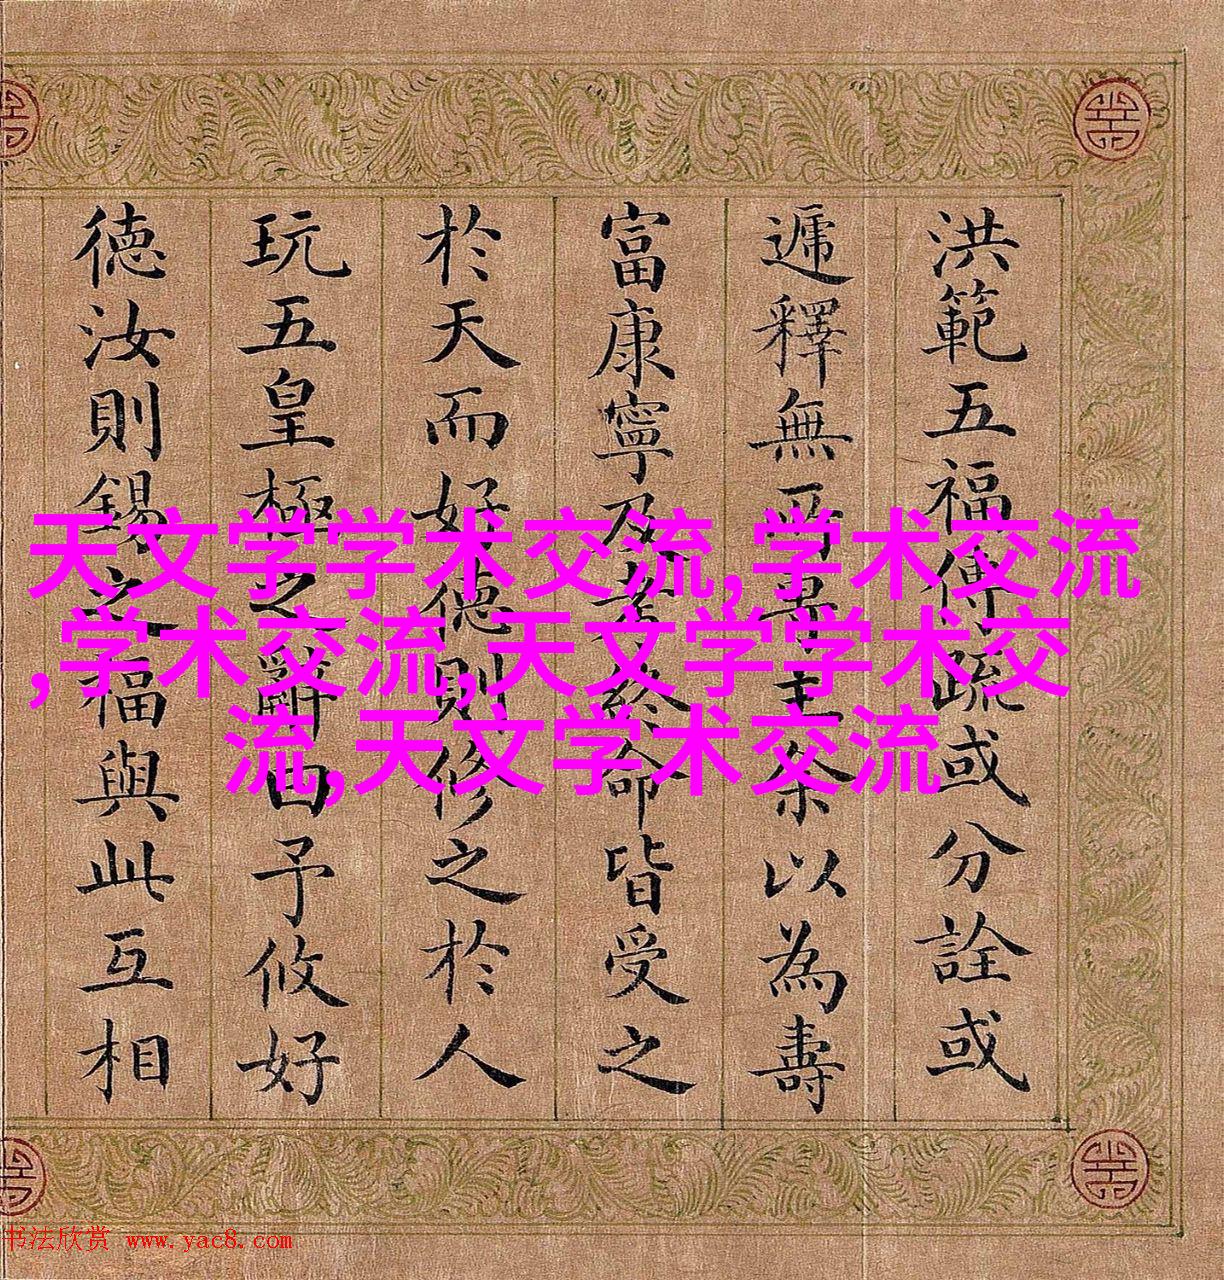 洪範五福傳疏或分詮或
遞釋無專主条以為壽
富康寧及考終命皆受之
於天而好德則修之於人
玩五皇極之辭曰予攸好
德汝則錫之福與此互相
天文学学术交流,学术交流
,学术交流,天文学学术交
流,天文学术交流
书法欣赏 www.yac8.com